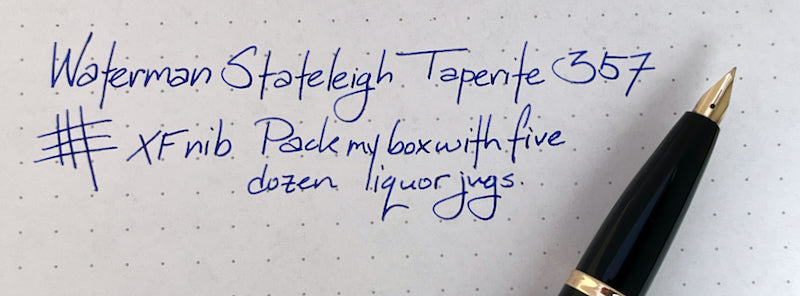 Waterman Stateleigh Taperite 357
XF nib Pack my box with five
dozen liquor jugs.